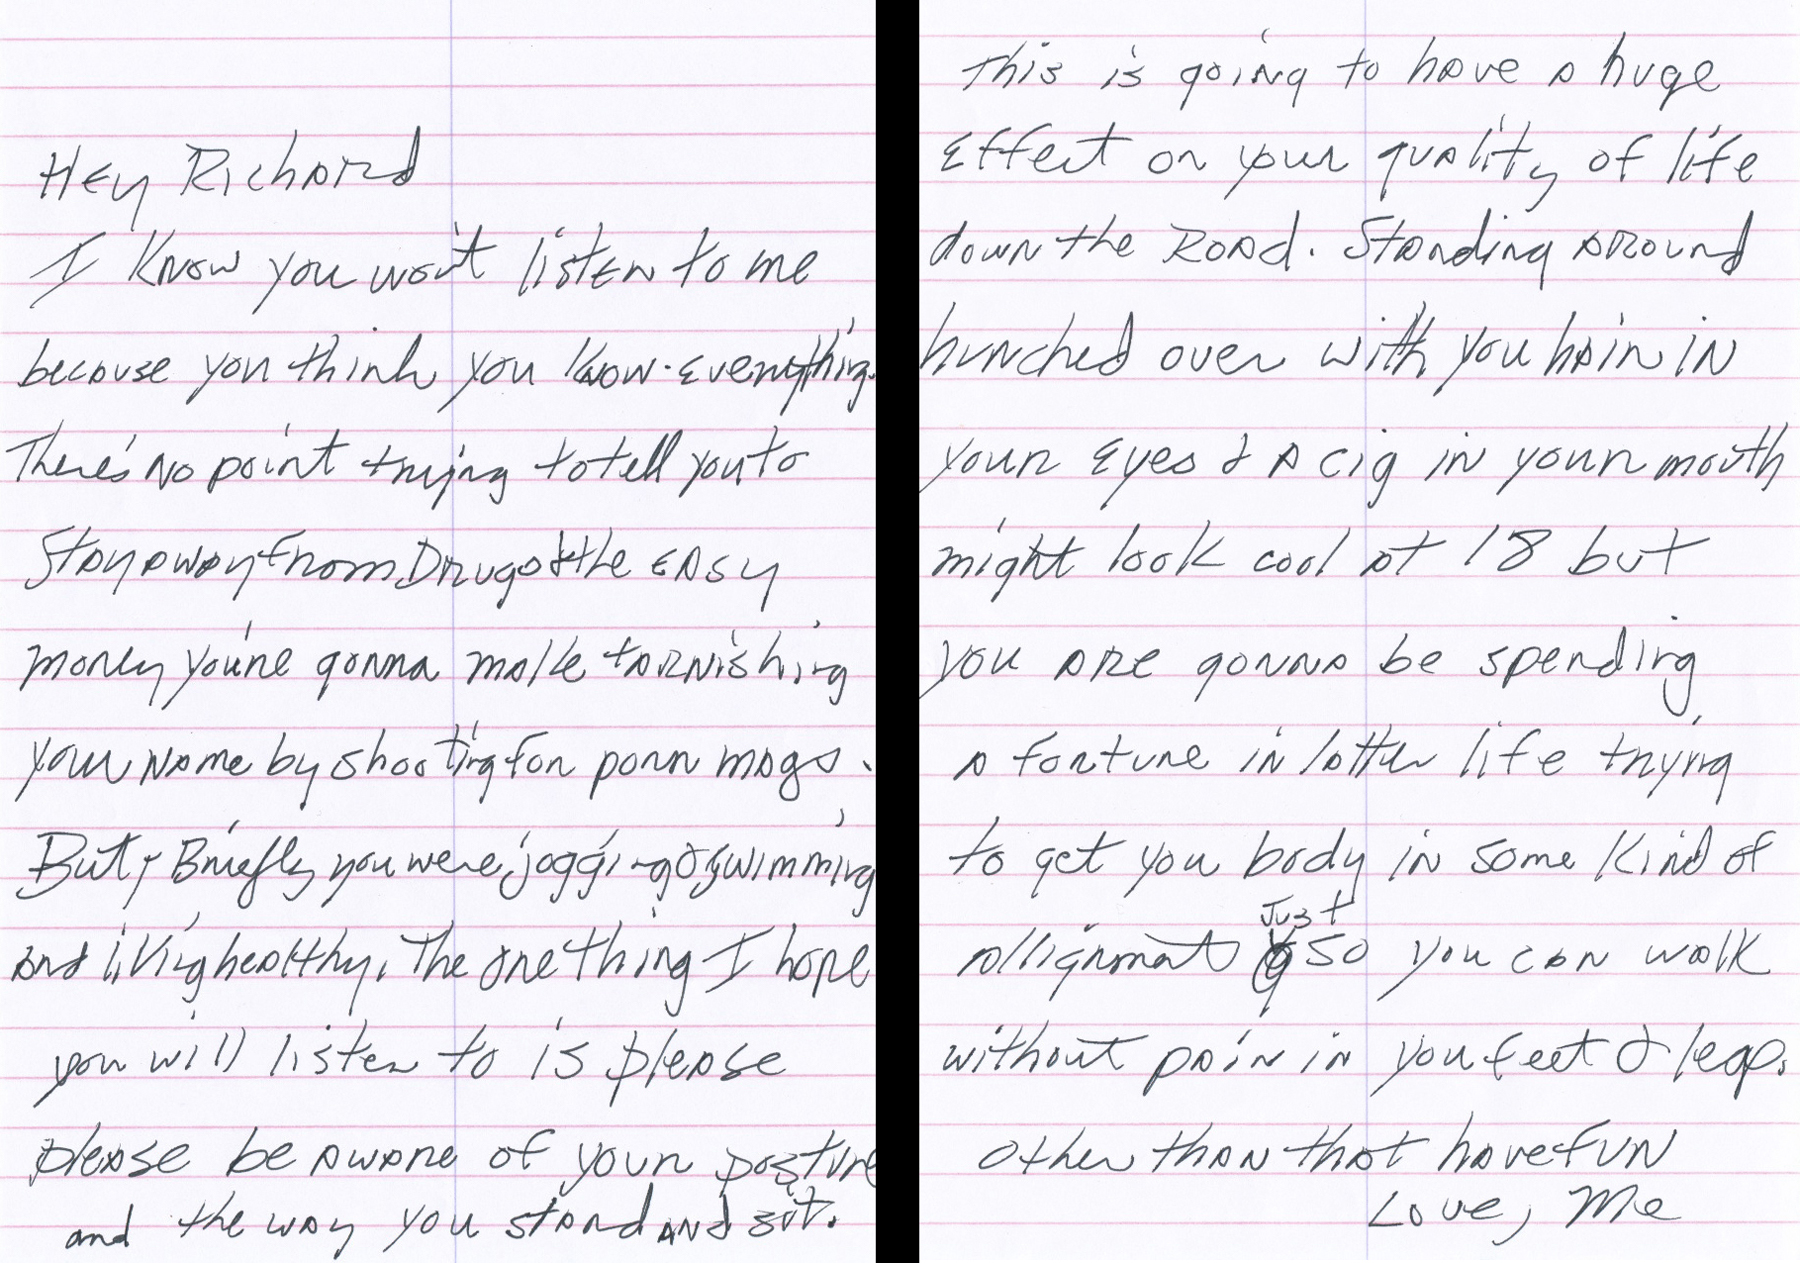 Hey Richard
I know you won't listen to me
because you think you know everything.
There's no point trying to tell you to
stay away from Drugs & the easy
money you're gonna make tarnishing
your name by shooting for porn mags.
But, Briefly you were jogging & swimming
and living healthy. The one thing I hope
you will listen to is please
please be aware of your posture
and the way you stand and sit.
This is going to have a huge
Effect on your quality of life
down the Road. Standing around
hunched over with you hair in
your Eyes & a cig in your mouth
might look cool at 18 but
you are gonna be spending
a fortune in latter life trying
to get you body in some kind of
Just
allignmant so you can walk
without pain in you feet & legs.
Other than that have fun
Love, Me